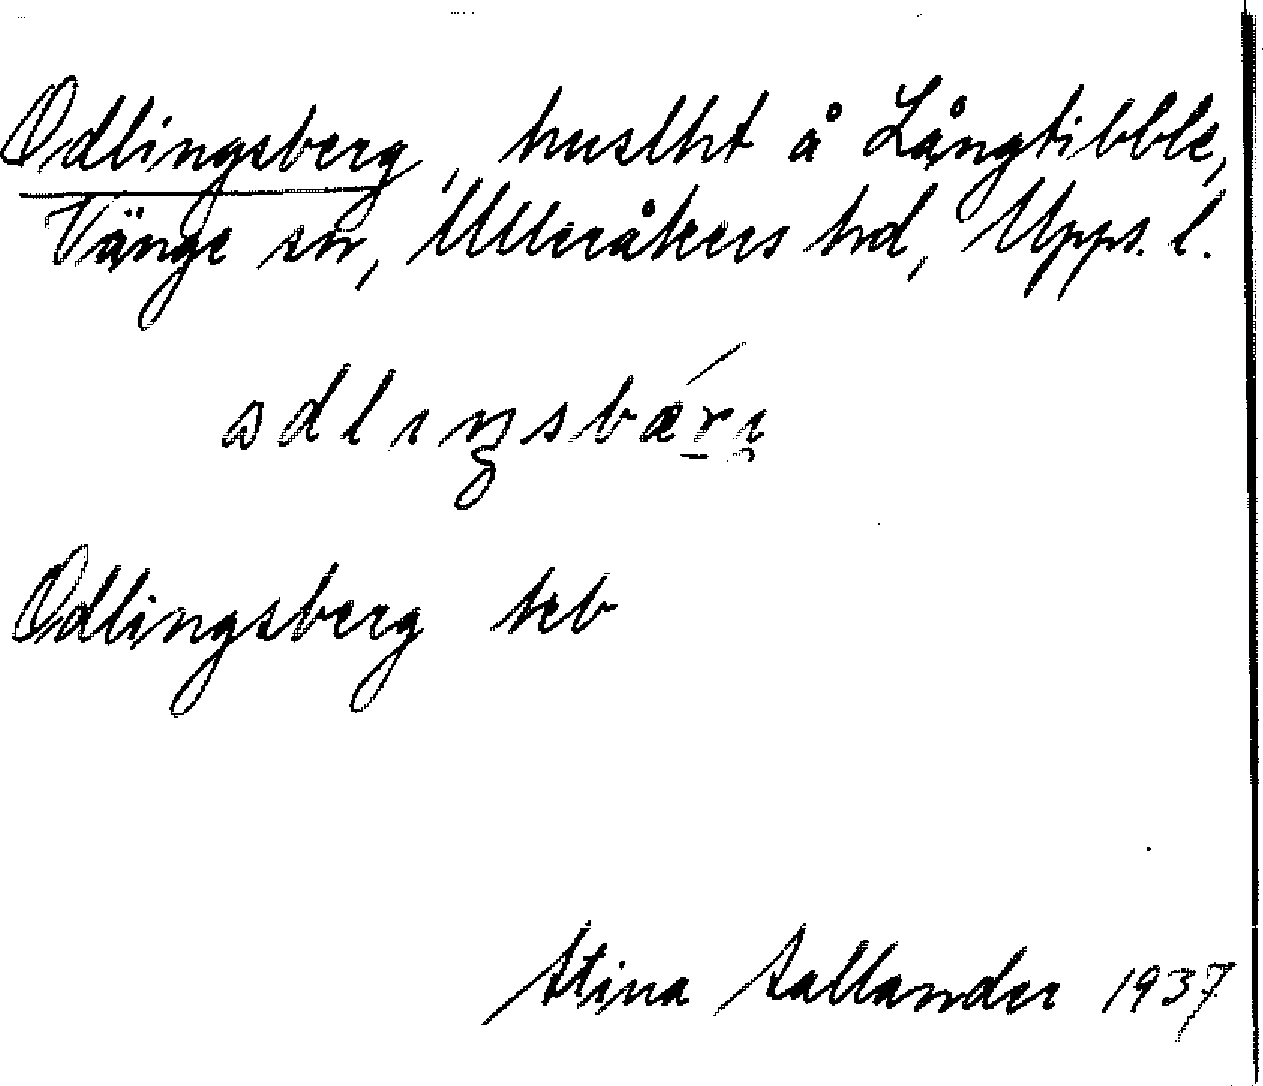 Odlingsberg, huslht å Långtibble,
Vänge sn, Ulleråkers hd, Upps. l.
Odlingsberg kb
Stina Sallander 1937